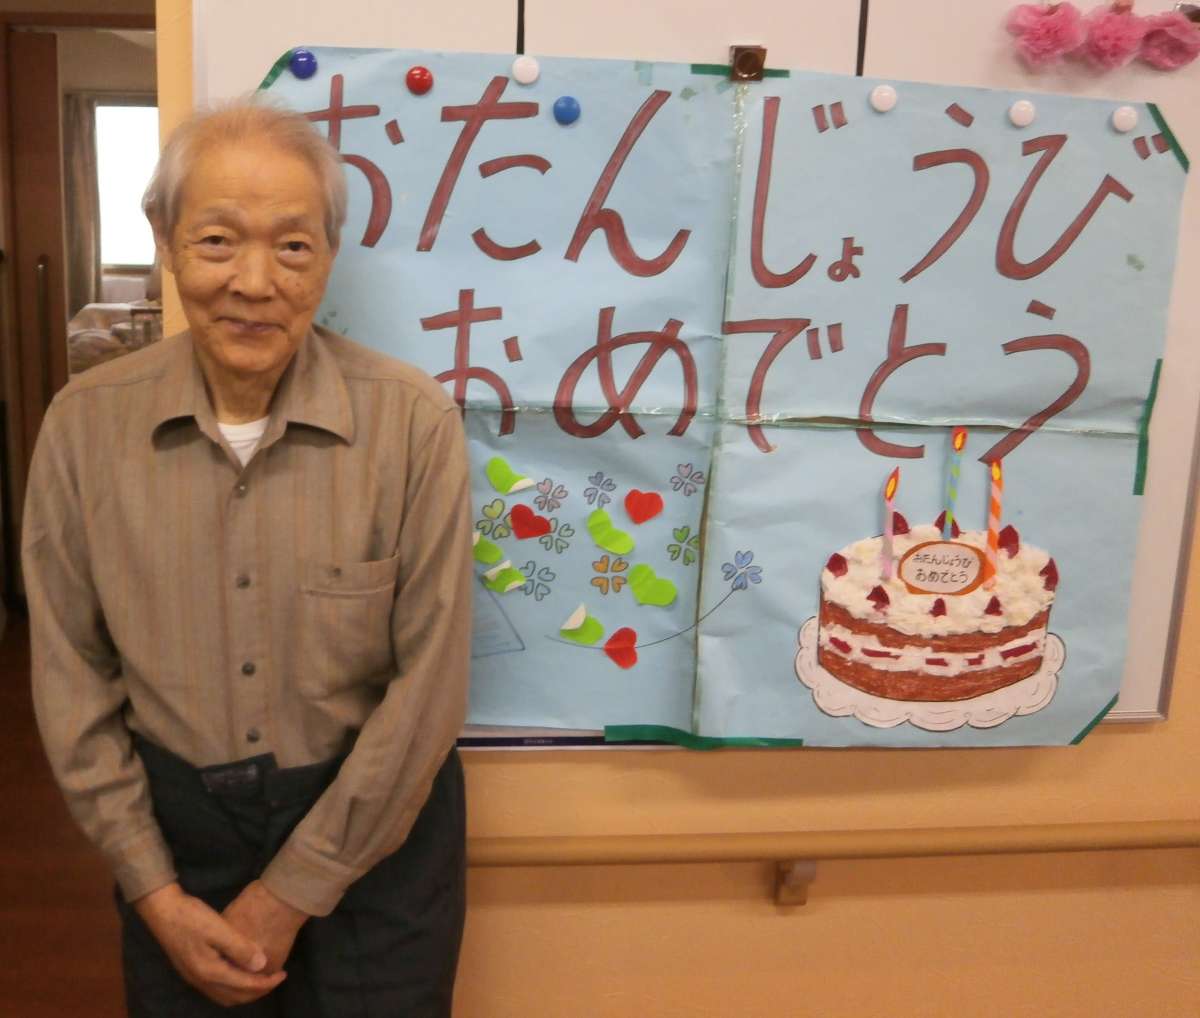 おたんじょうび
おめでとう
おたんじょうび
おめでとう